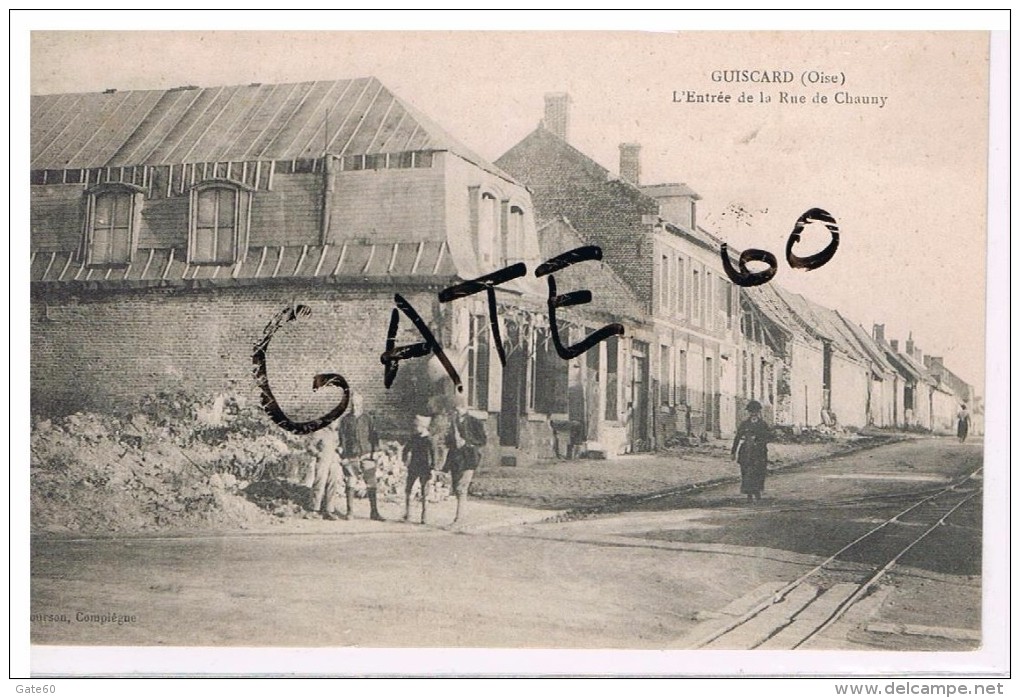 GUISCARD (Oise)
L'Entrée de la Rue de Chauny
GATE 60
Compiègne
Gate60
www.delcampe.net